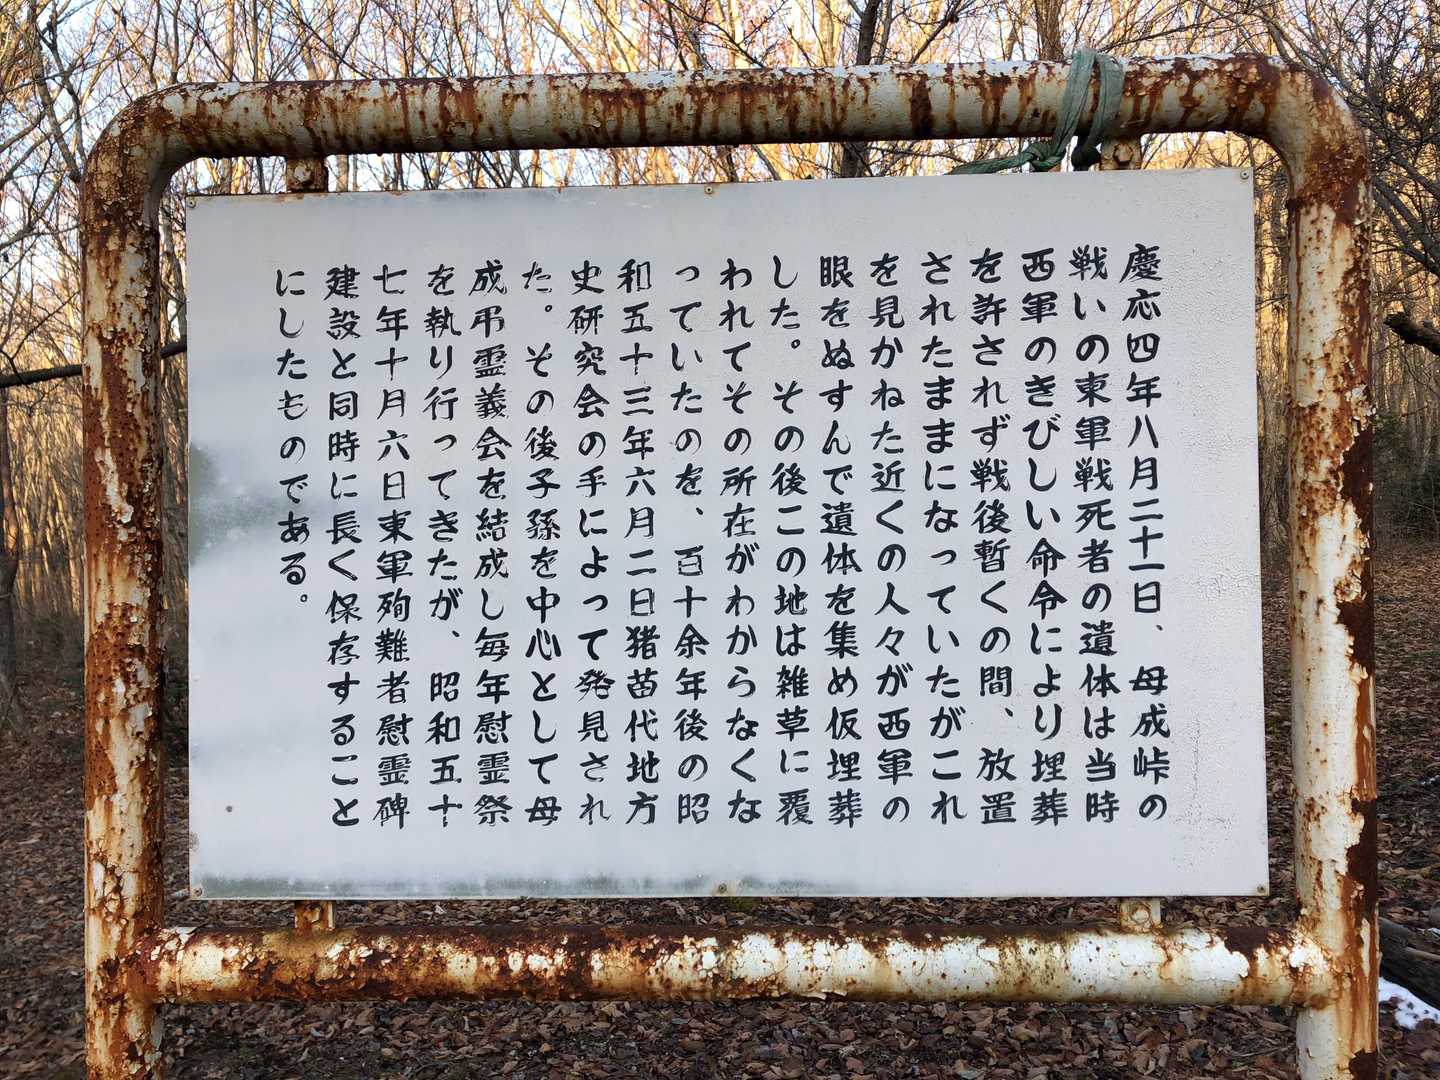 慶応四年八月二十一日、母成峠の
戦いの東軍戦死者の遺体は当時
西軍のきびしい命令により埋葬
を許されず戦後暫くの間、放置
されたままになっていたがこれ
を見かねた近くの人々が西軍の
眼をぬすんで遺体を集め仮埋葬
した。その後この地は雑草に覆
われてその所在がわからなくな
っていたのを、百十余年後の昭
和五十三年六月二日猪苗代地方
史研究会の手によって発見され
た。その後子孫を中心として母
成弔霊義会を結成し毎年慰霊祭
を執り行ってきたが、昭和五十
七年十月六日東軍殉難者慰霊碑
建設と同時に長く保存すること
にしたものである。